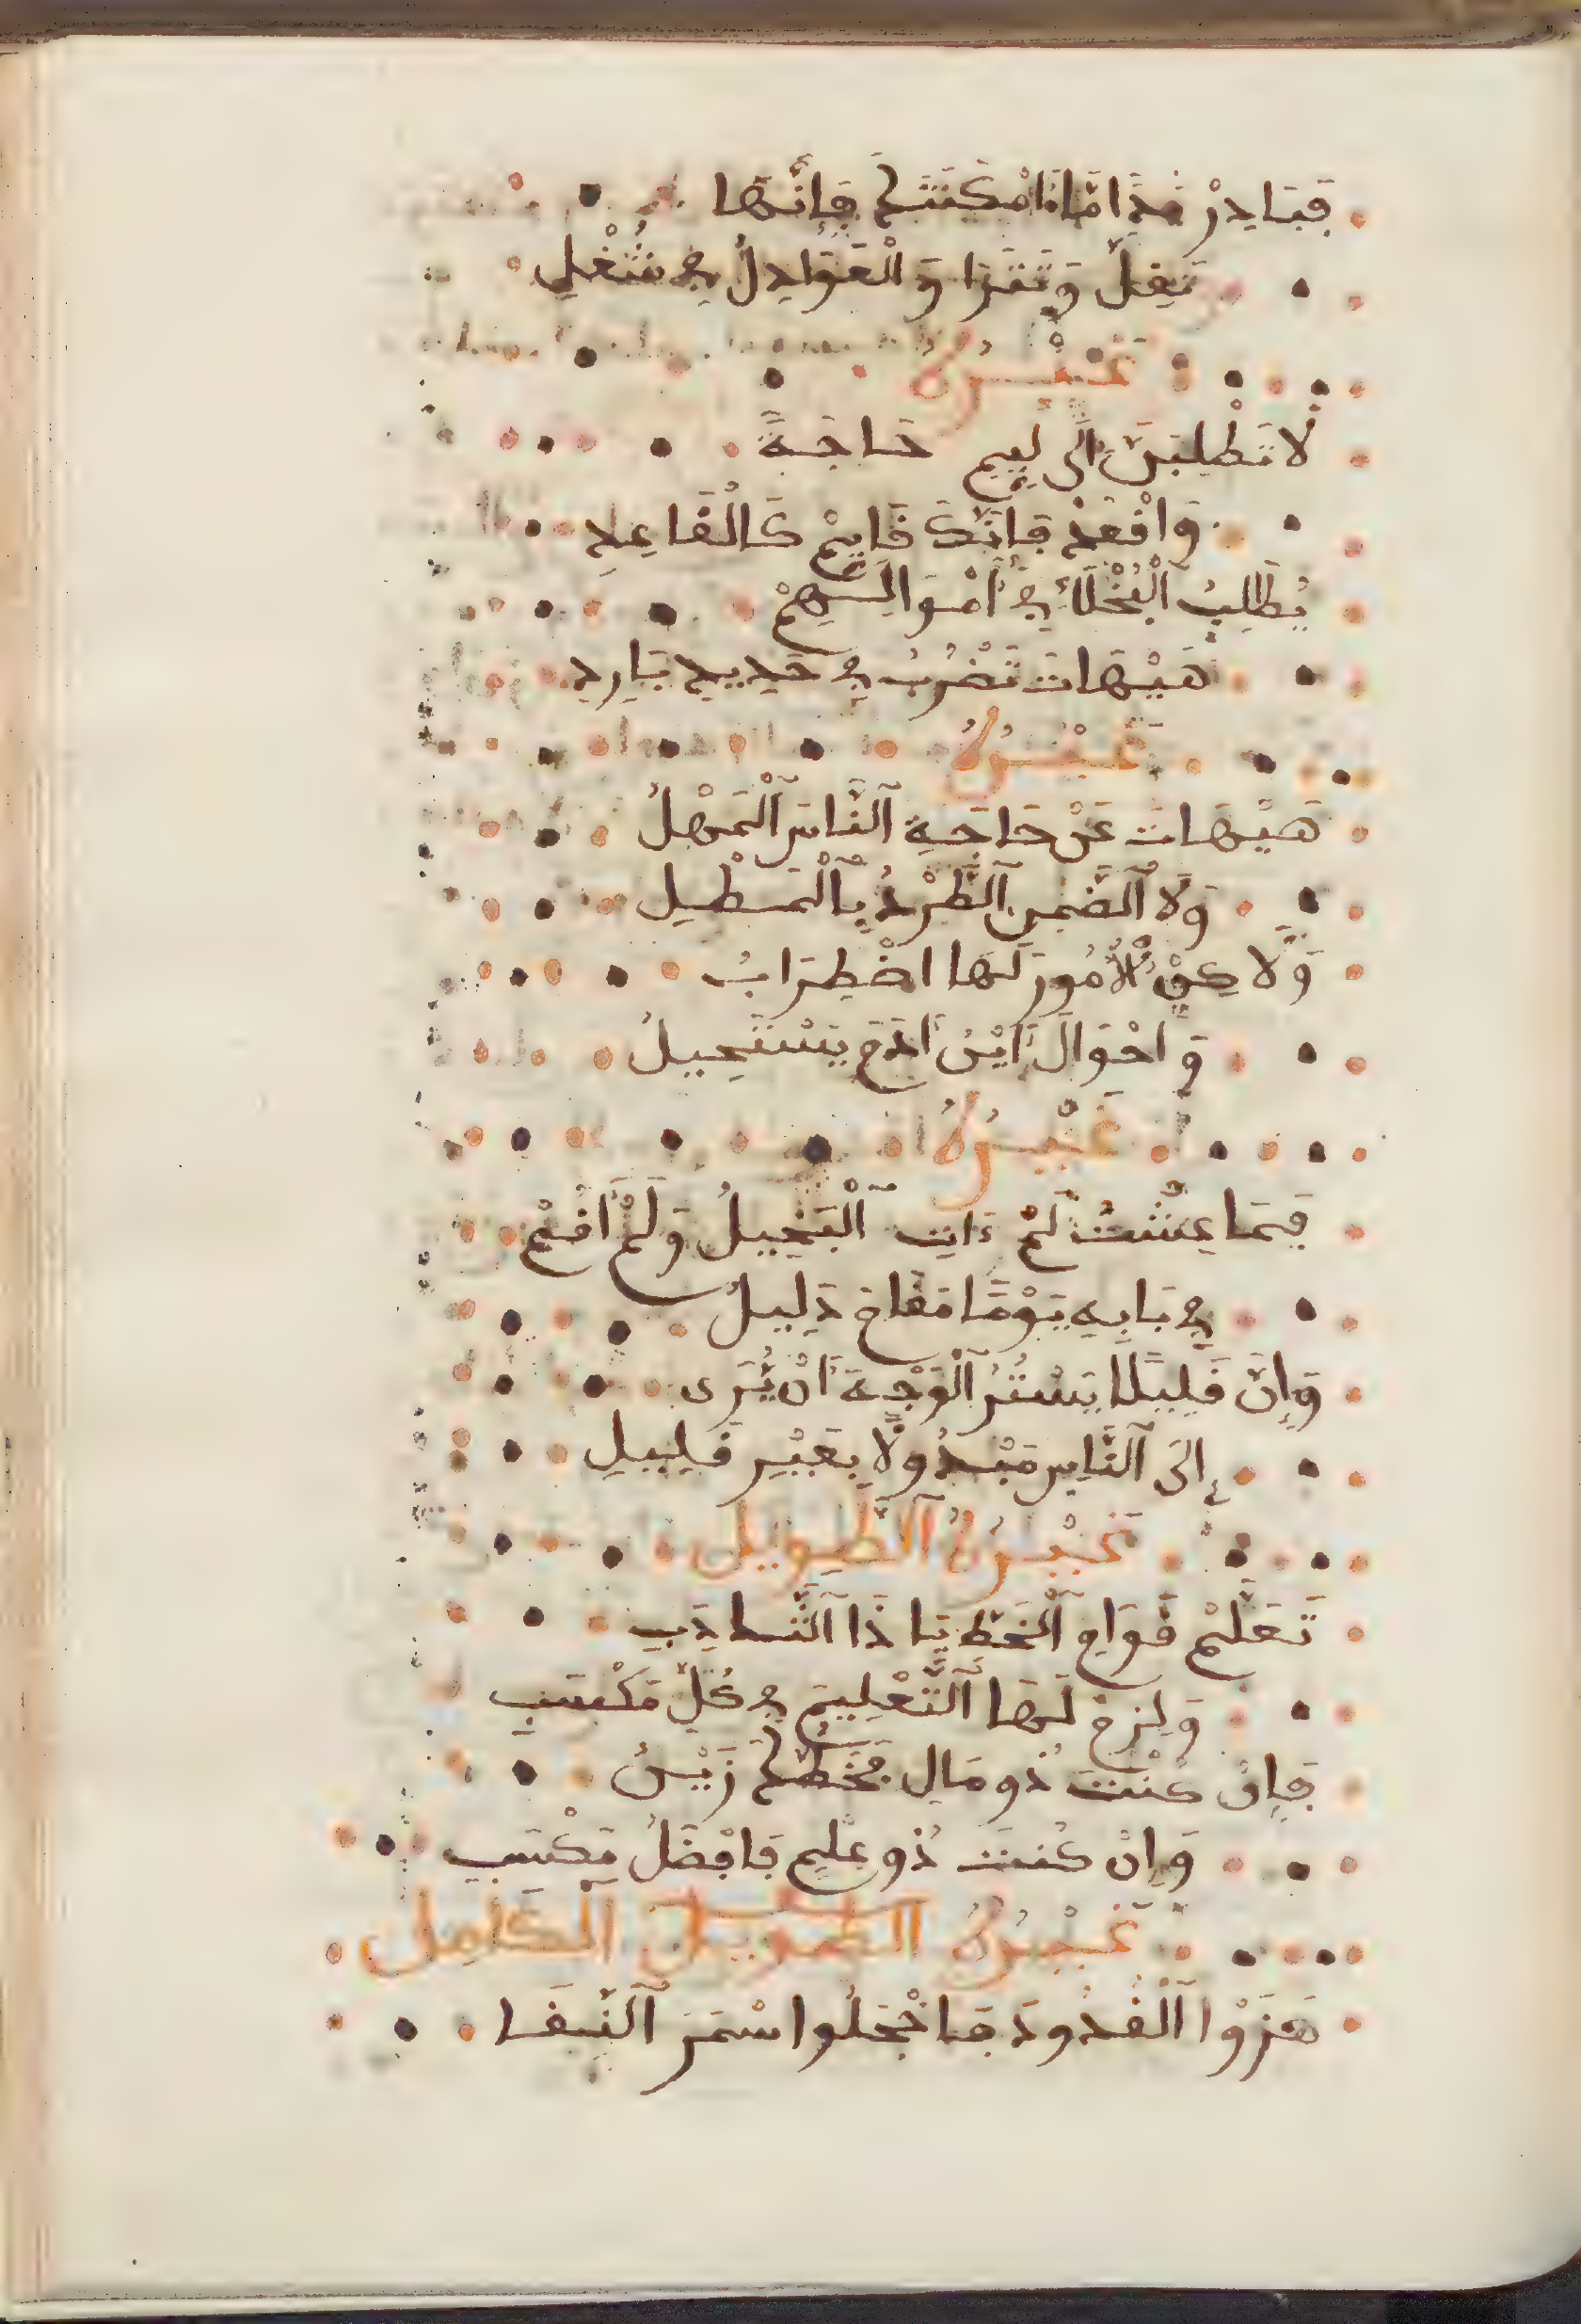 فَبَادِرْ إِذَا مَا أَمْكَنَتْكَ فَإِنَّهَا
تَفِلُّ وَتَنْزَا وَ الْعَوَادِلُ فِي شُغْلِ
غَيْرُهُ
لَا تَطْلُبَنَّ إِلَى لَئِيمٍ حَاجَةً
وَاقْعُدْ فَإِنَّكَ قَايِمٌ كَالْقَاعِدِ
يُطَالِبُ الْبُخَلَاءِ فِي أَمْوَالِهِمْ
هَيْهَاتَ تَضْرِبُ فِي حَدِيدٍ بَارِدِ
غَيْرُهُ
هَيْهَاتَ عَنْ حَاجَةِ النَّاسِ الْمَهْلُ
وَلَا الطَّرْدُ بِالْمَطِيلِ
وَلَاكِنْ الْأُمُورَ لَهَا اضْطِرَابُ
وَ احْوَالَ يَسْتَحِيلُ
غَيْرُهُ
فِمَا عِشْتُ لَمْ ءَاتِ الْبَخِيلُ وَلَمْ أَقُمْ
فِي بَابِهِ يَوْمًا مَقَامَ ذَلِيلُ
وَإِنَّ قَلِيلًا يَسْتُرُ الْوَجْهَ أَنْ يُرَى
إِلَى النَّاسِ مَبْذُولًا بِغَيْرِ قَلِيلِ
غَيْرُهُ الطَّوِيل
تَعَلَّمْ قَوَامِ الْخَطِّ يَا ذَا التَّأَدُّبِ
وَلِزِمْ لَهَا التَّعْلِيمَ فِي كُلِّ مَكْسَبِ
فَإِنْ كُنْتَ ذُو مَالٍ فَخَطُّكَ زَيْنُ
وَإِنْ كُنْتَ ذُو عِلْمٍ فَافْضَلُ مَكْسَبِ
غَيْرُهُ الطويل الكَامِل
هَزَّوْا الْقُدُودَ فَاخْجَلُوا سُمْرَ النِّيفَا